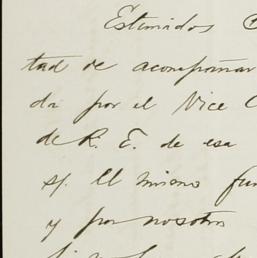 Estimados
tad de acompañar
da por el Vice C
de R. E. de esa
y por nosotros